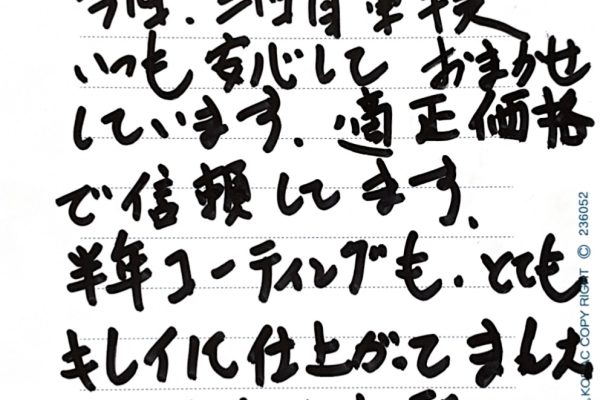 いつも安心して おまかせ
しています。適正価格
で信頼してます。
半年コーティングも、とても
キレイに仕上がってました
COPY RIGHT © 236052